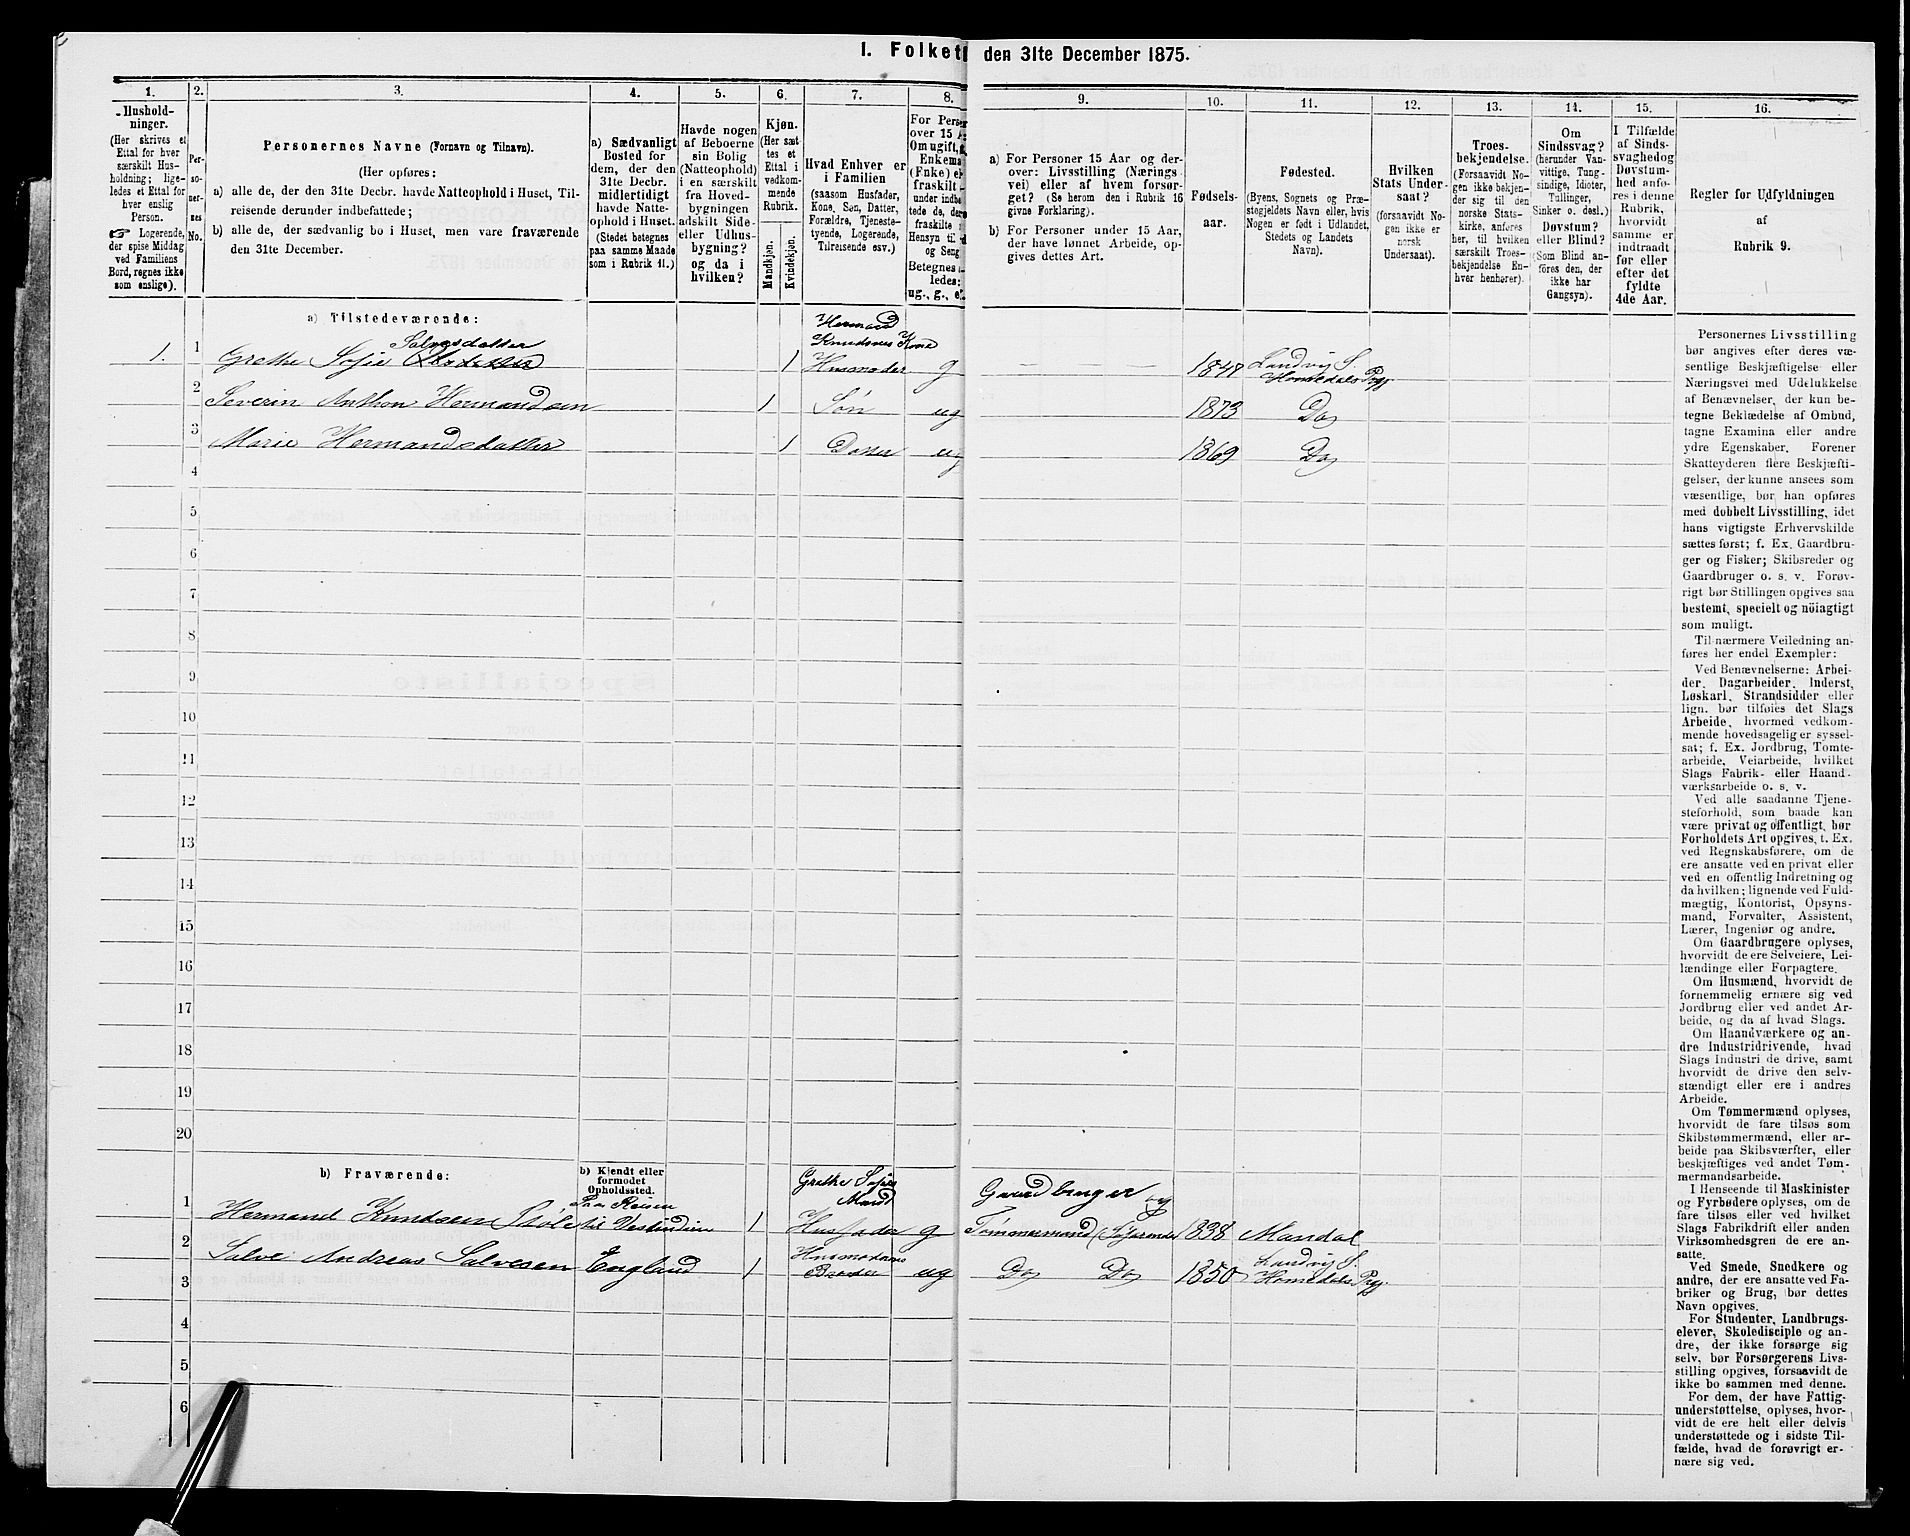 I. Folket den 31te December 1875.
1. 2. 3. 4. 5. 6. 7. 8. 9. 10. 11. 12. 13. 14. 15. 16.
Hushold-
ninger.
(Her skrives et
Ettal for hver
særskilt Hus-
holdning; lige-
ledes et Ettal for
hver enslig
Person.
☞ Logerende,
der spise Middag
ved Familiens
Bord, regnes ikke
som enslige).
Per-
so-
ner-
nes
No.
Personernes Navne (Fornavn og Tilnavn).
(Her opføres:
a) alle de, der den 31te Decbr. havde Natteophold i Huset, Til-
reisende derunder indbefattede;
b) alle de, der sædvanlig bo i Huset, men vare fraværende
den 31te December.
a) Sædvanligt
Bosted for
dem, der den
31te Decbr.
midlertidigt
havde Natte-
ophold i Huset.
(Stedet betegnes
paa samme Maade
som i Rubrik 11.)
Havde nogen
af Beboerne
sin Bolig
(Natteophold)
i en særskilt
fra Hoved-
bygningen
adskilt Side-
eller Udhus-
bygning?
og da i
hvilken?
Kjøn.
(Her sæt-
tes et
Ettal i
vedkom-
mende
Rubrik.
Mandkjøn.
Kvindekjøn.
Hvad Enhver er
i Familien
(saasom Husfader,
Kone, Søn, Datter,
Forældre, Tjeneste-
tyende, Logerende,
Tilreisende osv.)
For Perso
over 15 A
Om ugift,
Enkema
(Enke) el
fraskilt
under indbe
tede de, der
fraskilte
Hensyn til
og Seng
Betegnes
ledes:
ug., g., e.
a) For Personer 15 Aar og der-
over: Livsstilling (Nærings
vei) eller af hvem forsør-
get? (Se herom den i Rubrik 16
givne Forklaring).
b) For Personer under 15 Aar,
der have lønnet Arbeide, op-
gives dettes Art.
Fødsels-
aar.
Fødested.
(Byens, Sognets og Præ-
stegjeldets Navn eller, hvis
Nogen er født i Udlandet,
Stedets og Landets
Navn).
Hvilken
Stats Under-
saat?
(forsaavidt No-
gen ikke er
norsk
Undersaat).
Troes-
bekjendelse.
(Forsaavidt No-
gen ikke bekjen-
der sig til den
norske Stats-
kirke, anføres
her, til hvilken
særskilt Troes-
bekjendelse En-
hver henhører).
Om
Sindssvag?
(herunder Van-
vittige, Tung-
sindige, Idioter,
Tullinger,
Sinker o. desl.)
Døvstum?
eller Blind?
(Som Blind an-
føres den, der
ikke har
Gangsyn).
I Tilfælde
af Sinds-
svaghed og
Døvstum-
hed anfø-
res i denne
Rubrik,
hvorvidt
samme er
indtraadt
før eller
efter det
fyldte
4de Aar.
Regler for Udfyldningen
af
Rubrik 9.
a) Tilstedeværende:
1. 1 Grethe Sofie Salvesdatter 1 Hermand Knudsens Kone Husmoder g — — — 1847 Landvig S. Homedals Pgj.
2 Severin Anthon Hermandsen 1 Søn ug 1873 Do
3 Marie Hermandsdatter 1 Datter ug 1869 Do
4
5
6
7
8
9
10
11
12
13
14
15
16
17
18
19
20
b) Fraværende:
b) Kjendt eller
formodet
Opholdssted.
1 Hermand Knudsen Paa Reisen til Vestindien 1 Grethe Sofies Mand Husfader g Gaardbruger og Tømmermand 1838 Mandal
2 Salve Andreas Salvesen England 1 Husmoderens Broder ug Do Do 1850 Landvig S. Homedals Pgj.
3
4
5
6
Personernes Livsstilling
bør angives efter deres væ-
sentlige Beskjæftigelse eller
Næringsvei med Udelukkelse
af Benævnelser, der kun be-
tegne Beklædelse af Ombud,
tagne Examina eller andre
ydre Egenskaber. Forener
Skatteyderen flere Beskjæfti-
gelser, der kunne ansees som
væsentlige, bør han opføres
med dobbelt Livsstilling, idet
hans vigtigste Erhvervskilde
sættes først; f. Ex. Gaardbru-
ger og Fisker; Skibsreder og
Gaardbruger o. s. v. Forøv-
rigt bør Stillingen opgives saa
bestemt, specielt og nöiagtigt
som muligt.
Til nærmere Veiledning an-
føres her endel Exempler:
Ved Benævnelserne: Arbei-
der, Dagarbeider, Inderst,
Løskarl, Strandsidder eller
lign. bør tilføies det Slags
Arbeide, hvormed vedkom-
mende hovedsagelig er syssel-
sat; f. Ex. Jordbrug, Tomte-
arbeide, Veiarbeide, hvilket
Slags Fabrik- eller Haand-
værksarbeide o. s. v.
Ved alle saadanne Tjene-
steforhold, som baade kan
være privat og offentligt, bør
Forholdets Art opgives, t. Ex.
ved Regnskabsførere, om de
ere ansatte ved en privat eller
ved en offentlig Indretning og
da hvilken; lignende ved Fuld-
mægtig, Kontorist, Opsyns-
mand, Forvalter, Assistent,
Lærer, Ingeniør og andre.
Om Gaardbrugere oplyses,
hvorvidt de ere Selveiere, Lei-
lændinge eller Forpagtere.
Om Husmænd, hvorvidt de
fornemmelig ernære sig ved
Jordbrug eller ved andet Ar-
beide, og da af hvad Slags.
Om Haandværkere og an-
dre Industridrivende, hvad
Slags Industri de drive, samt
hvorvidt de drive den selv-
stændigt eller ere i andres
Arbeide.
Om Tømmermænd oplyses,
hvorvidt de fare tilsøs som
Skibstømmermænd, eller ar-
beide paa Skibsværfter, eller
beskjæftiges ved andet Tøm-
mermandsarbeide.
I Henseende til Maskinister
og Fyrbødere oplyses, om de
fare tilsøs eller ved hvilket
Slags Fabrikdrift eller anden
Virksomhedsgren de ere an-
satte.
Ved Smede, Snedkere og
andre, der ere ansatte ved Fa-
briker og Brug, bør dettes
Navn opgives.
For Studenter, Landbrugs-
elever, Skoledisciple og an-
dre, der ikke forsørge sig
selv, bør Forsørgerens Livs-
stilling opgives, forsaavidt de
ikke bo sammen med denne.
For dem, der have Fattig-
understøttelse, oplyses, hvor-
vidt de ere helt eller delvis
understøttede og i sidste Til-
fælde, hvad de forøvrigt er-
nære sig ved.